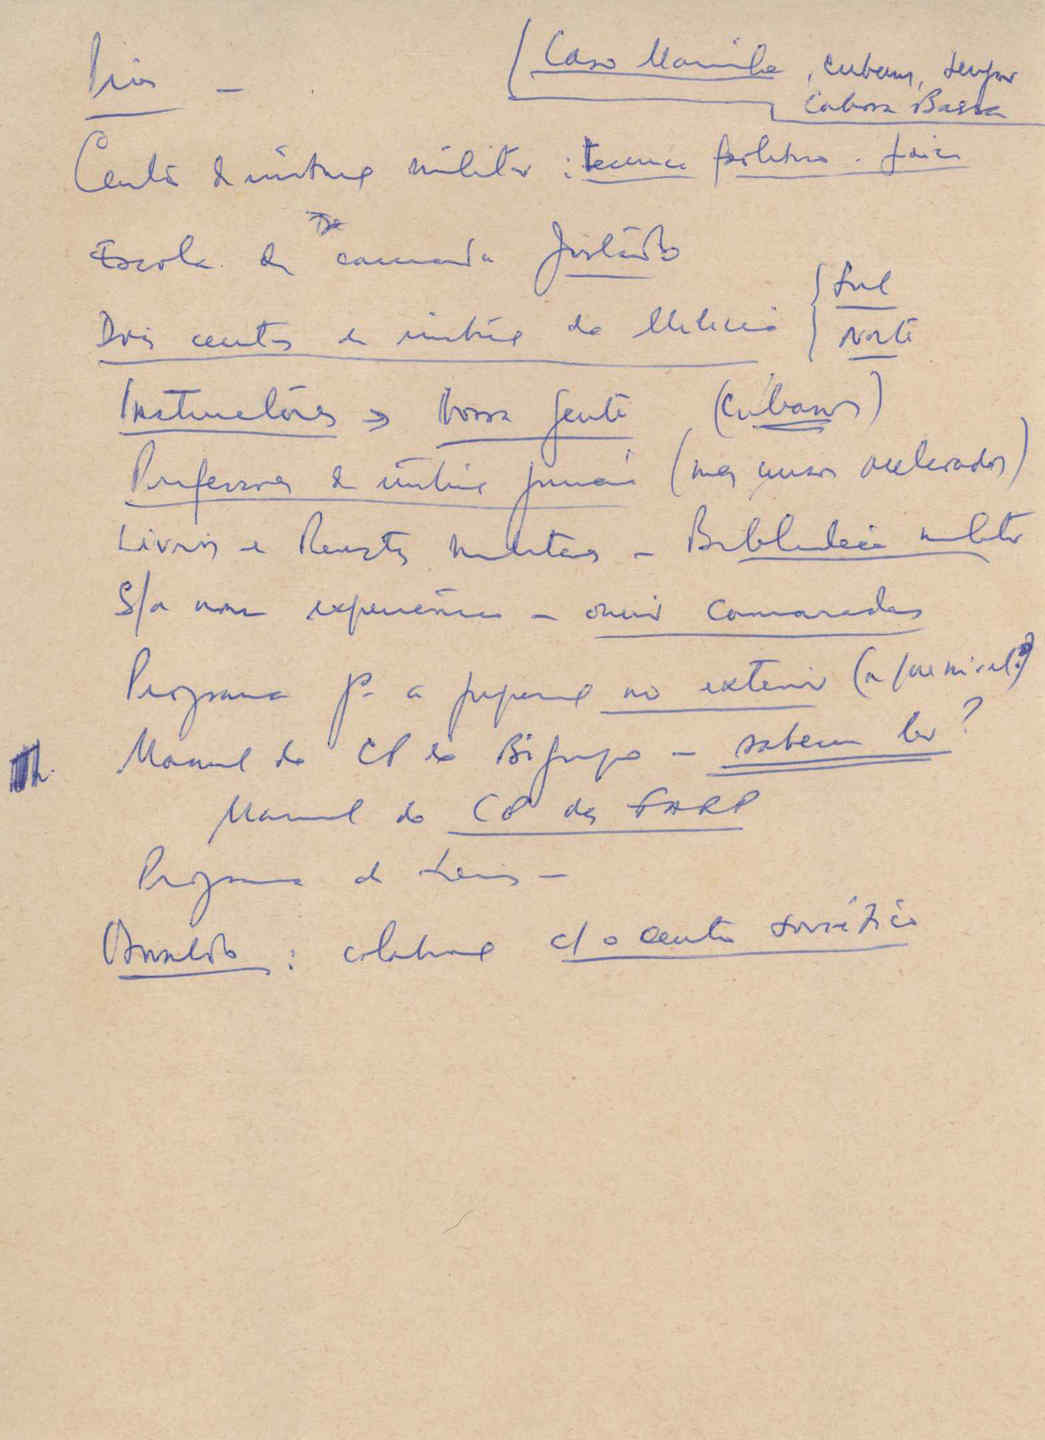 Pires -
Caso Marinha, cubanos,
Cabora Bassa
Centro de instrução militar : técnica política . física
Escola de
Dois centros de instrução da Milícia { Sul
Norte
Instructores → Nossa gente (cubanos)
Professores de instrução primária (nos cursos acelerados)
Livros e Revistas militares - Biblioteca militar
S/a nossa experiência - ouvir camaradas
Programa pª a preparação no exterior (a que nível?)
Manual do CP do Bigrupo - sabem ler?
Manual do CP das FARP
Programa de
Osvaldo : colaboração c/ o centro soviético